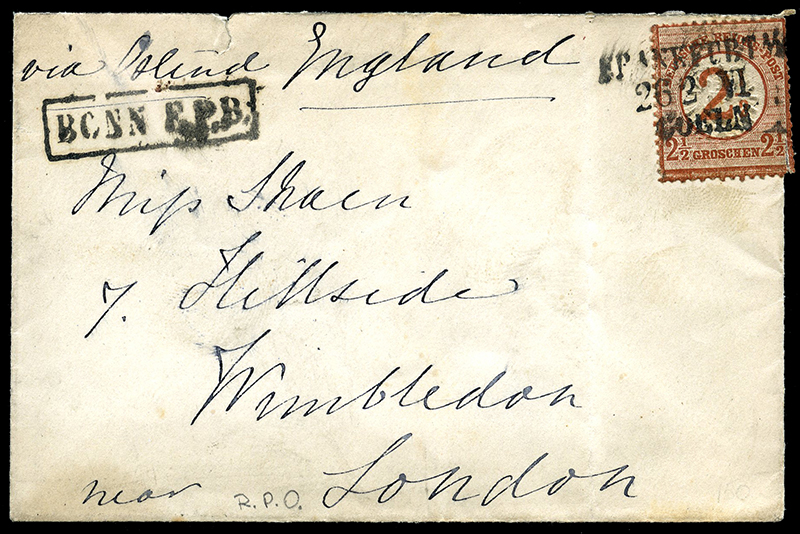 via Ostend England
BONN E.P.B.
FRANKFURT
26 2 VI
COELN
2
2½ GROSCHEN 2½
Miss Shaen
7. Hillside
Wimbledon
near London
R.P.O.